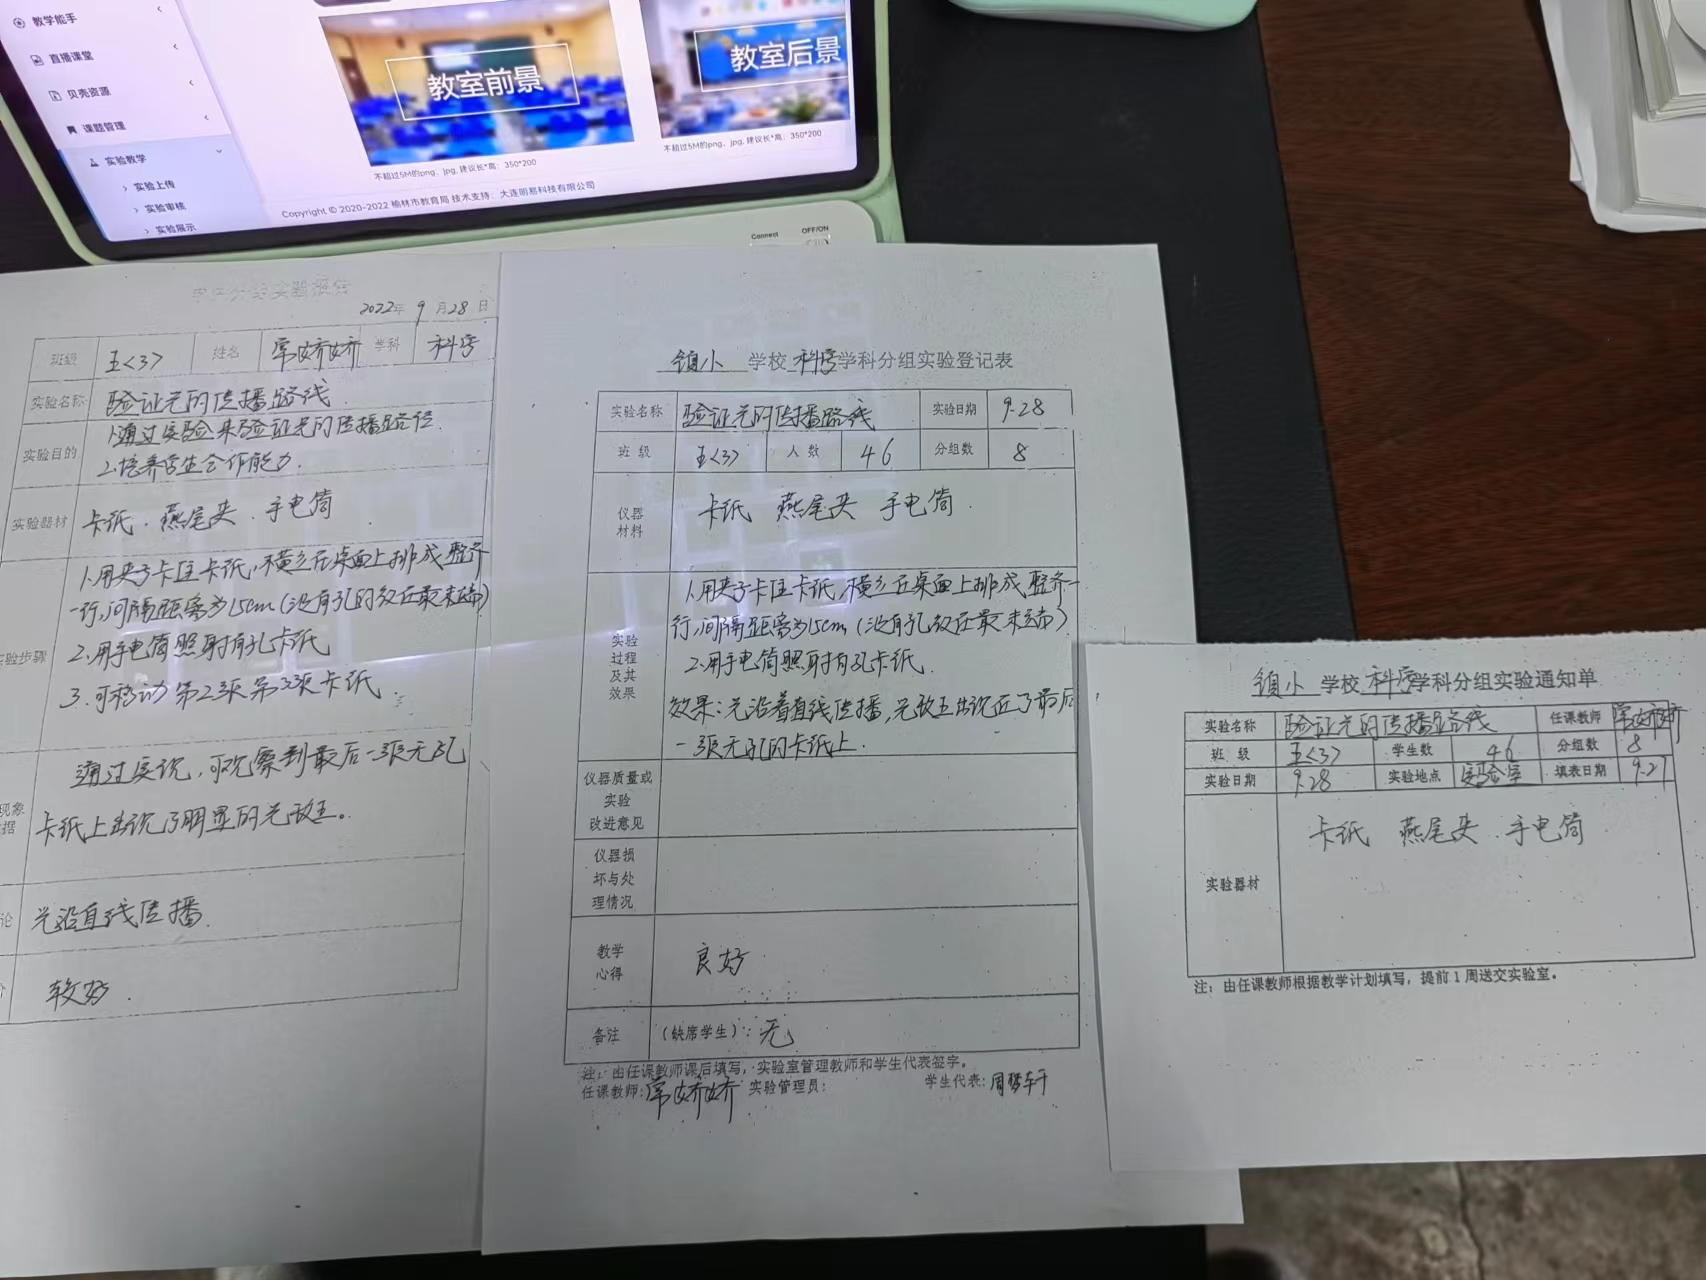 教学能手
直播课堂
贝壳资源
课题管理
实验教学
实验上传
实验审核
实验展示
教室前景
教室后景
不超过5M的png、jpg, 建议长*高：350*200
不超过5M的png、jpg, 建议长*高：350*200
Copyright © 2020-2022 榆林市教育局 技术支持：大连明易科技有限公司
Connect OFF/ON
学生分组实验报告
2022年 9 月 28 日
班级 五<3> 姓名 常娇娇 学科 科学
实验名称 验证光的传播路线
实验目的 1.通过实验来验证光的传播路径.
2.培养学生合作能力.
实验器材 卡纸. 燕尾夹. 手电筒
验步骤 1.用夹子卡住卡纸,横立在桌面上排成整齐
一行,间隔距离为15cm(没有孔的放在最末端)
2.用手电筒照射有孔卡纸
3.可移动第2张第3张卡纸.
现象
据
通过实验,可观察到最后一张无孔
卡纸上出现了明显的光斑。
论 光沿直线传播.
价 较好.
镇小 学校 科学 学科分组实验登记表
实验名称 验证光的传播路线 实验日期 9.28
班 级 五<3> 人 数 46 分组数 8
仪器
材料
卡纸 燕尾夹 手电筒.
实验
过程
及其
效果
1.用夹子卡住卡纸,横立在桌面上排成整齐一
行,间隔距离为15cm(没有孔放在最末端)
2.用手电筒照射有孔卡纸.
效果:光沿着直线传播,光斑出现在了最后
一张无孔的卡纸上.
仪器质量或
实验
改进意见
仪器损
坏与处
理情况
教学
心得
良好.
备注 (缺席学生)：无
注：由任课教师课后填写，实验室管理教师和学生代表签字。
任课教师:常娇娇 实验管理员: 学生代表:周梦轩
镇小 学校 科学 学科分组实验通知单
实验名称 验证光的传播路线 任课教师 常娇娇
班 级 五<3> 学生数 46 分组数 8
实验日期 9.28 实验地点 实验室 填表日期 9.27
实验器材 卡纸 燕尾夹. 手电筒
注：由任课教师根据教学计划填写，提前1周送交实验室。